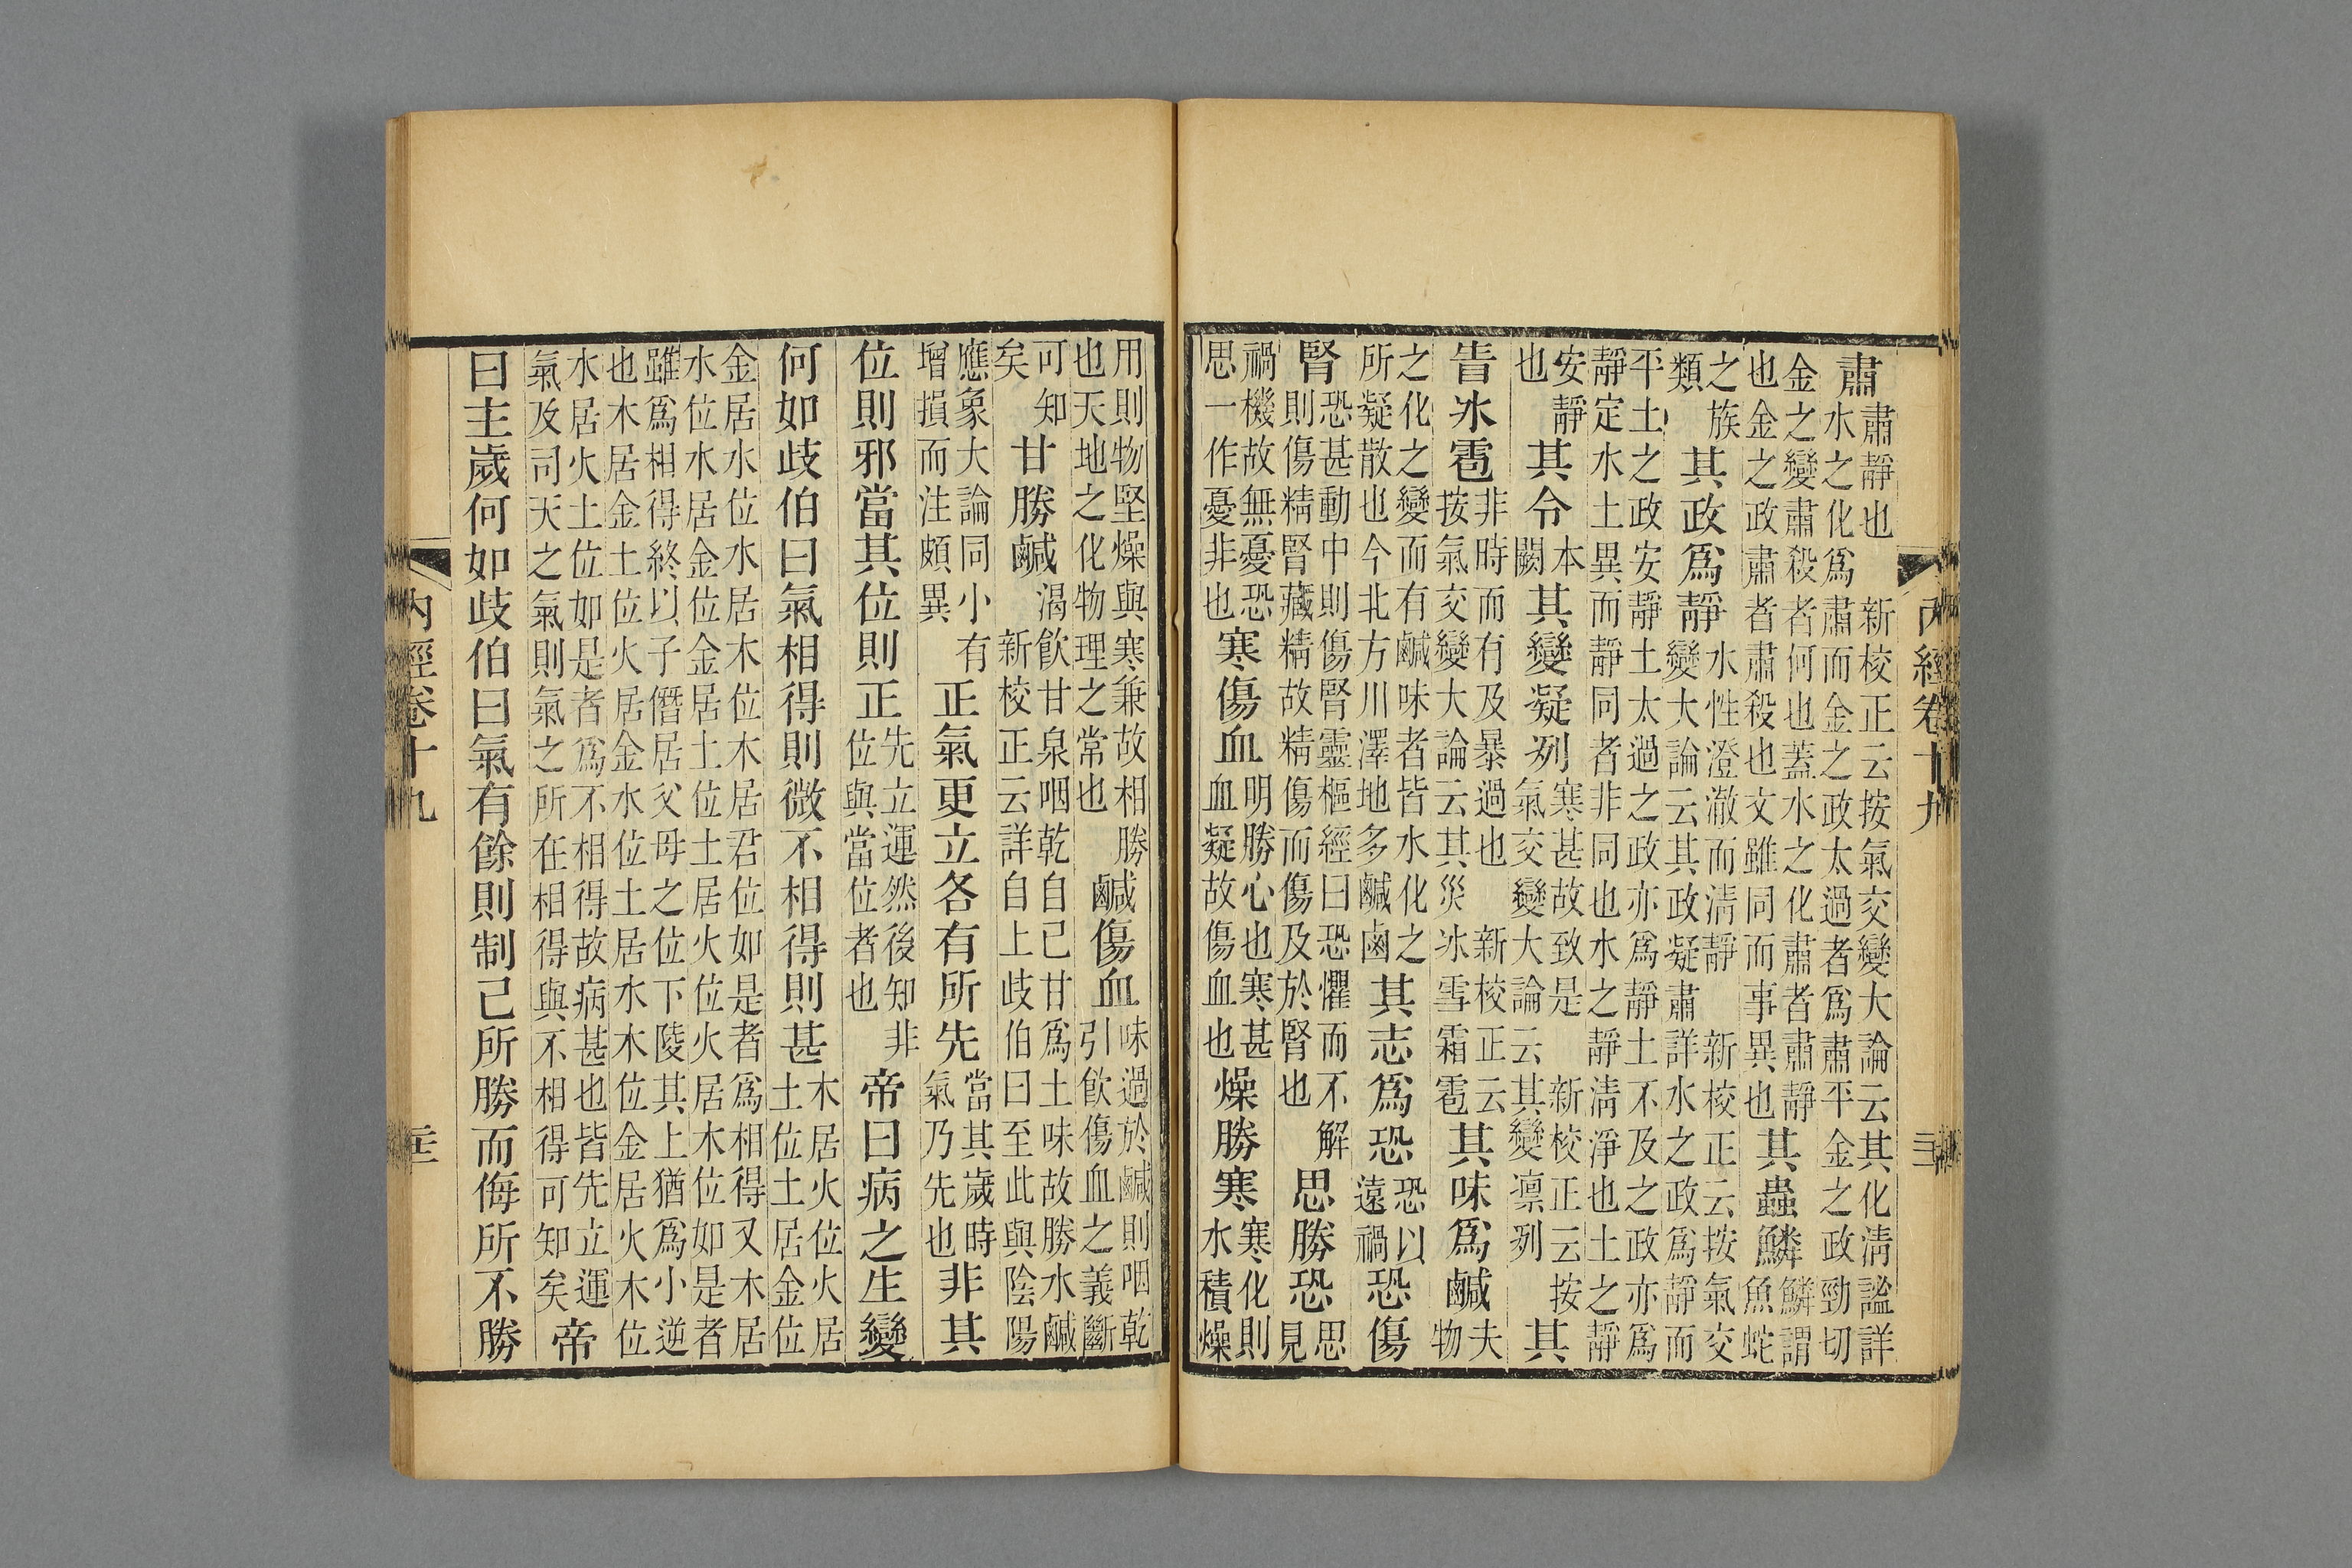 肅肅靜也 新校正云按氣交變大論云其化清謐詳水之化爲肅而金之政太過者爲肅平金之政勁切
金之變肅殺者何也蓋水之化肅者肅靜也金之政肅者肅殺也文雖同而事異也其蟲鱗鱗謂魚蛇
之族類其政爲靜水性澄澈而清靜 新校正云按氣交變大論云其政凝肅詳水之政爲靜而
平土之政安靜土太過之政亦爲靜土不及之政亦爲靜定水土異而靜同者非同也水之靜清淨也土之靜
安靜也其令本闕其變凝冽寒甚故致是 新校正云按氣交變大論云其變凛冽其
眚氷雹非時而有及暴過也 新校正云按氣交變大論云其災氷雪霜雹其味爲鹹夫物
之化之變而有鹹味者皆水化之所凝散也今北方川澤地多鹹鹵其志爲恐恐以遠禍恐傷
腎恐甚動中則傷腎靈樞經曰恐懼而不解則傷精腎藏精故精傷而傷及於腎也思勝恐思見
禍機故無憂恐思一作憂非也寒傷血明勝心也寒甚血凝故傷血也燥勝寒寒化則水積燥
用則物堅燥與寒兼故相勝也天地之化物理之常也鹹傷血味過於鹹則咽乾引飲傷血之義斷
可知矣甘勝鹹渴飲甘泉咽乾自已甘爲土味故勝水鹹 新校正云詳自上歧伯曰至此與陰陽
應象大論同小有增損而注頗異正氣更立各有所先當其歲時氣乃先也非其
位則邪當其位則正先立運然後知非位與當位者也帝曰病之生變
何如歧伯曰氣相得則微不相得則甚木居火位火居土位土居金位
金居水位水居木位木居君位如是者爲相得又木居水位水居金位金居土位土居火位火居木位如是者
雖爲相得終以子僭居父母之位下陵其上猶爲小逆也木居金土位火居金水位土居水木位金居火木位
水居火土位如是者爲不相得故病甚也皆先立運氣及司天之氣則氣之所在相得與不相得可知矣帝
曰主歲何如歧伯曰氣有餘則制己所勝而侮所不勝
內經卷十九